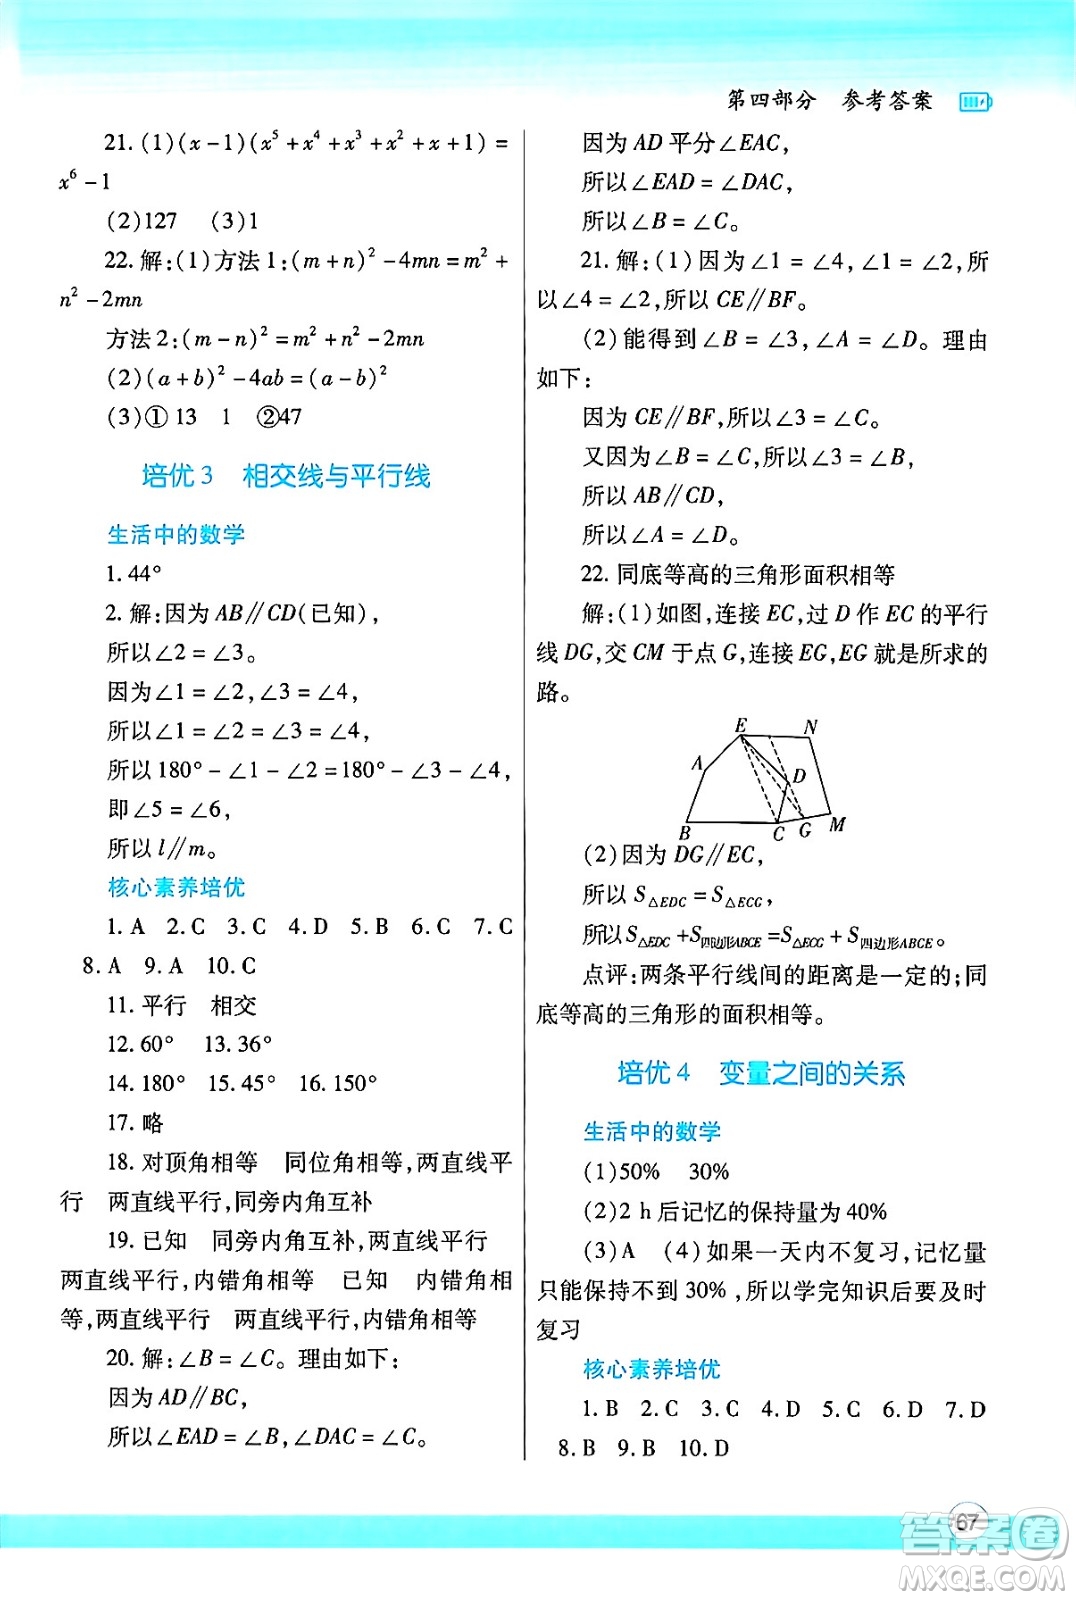 第四部分 参考答案
21.(1)(x-1)(x⁵+x⁴+x³+x²+x+1)=
x⁶-1
(2)127 (3)1
22.解:(1)方法1:(m+n)²-4mn=m²+
n²-2mn
方法2:(m-n)²=m²+n²-2mn
(2)(a+b)²-4ab=(a-b)²
(3)①13 1 ②47
培优3 相交线与平行线
生活中的数学
1.44°
2.解:因为AB∥CD(已知),
所以∠2=∠3。
因为∠1=∠2,∠3=∠4,
所以∠1=∠2=∠3=∠4,
所以180°-∠1-∠2=180°-∠3-∠4,
即∠5=∠6,
所以l∥m。
核心素养培优
1.A 2.C 3.C 4.D 5.B 6.C 7.C
8.A 9.A 10.C
11.平行 相交
12.60° 13.36°
14.180° 15.40° 16.150°
17.略
18.对顶角相等 同位角相等,两直线平
行 两直线平行,同旁内角互补
19.已知 同旁内角互补,两直线平行
两直线平行,内错角相等 已知 内错角相
等,两直线平行 两直线平行,内错角相等
20.解:∠B=∠C。理由如下:
因为AD∥BC,
所以∠EAD=∠B,∠DAC=∠C。
因为AD平分∠EAC,
所以∠EAD=∠DAC,
所以∠B=∠C。
21.解:(1)因为∠1=∠4,∠1=∠2,所
以∠4=∠2,所以CE∥BF。
(2)能得到∠B=∠3,∠A=∠D。理由
如下:
因为CE∥BF,所以∠3=∠C。
又因为∠B=∠C,所以∠3=∠B,
所以AB∥CD,
所以∠A=∠D。
22.同底等高的三角形面积相等
解:(1)如图,连接EC,过D作EC的平行
线DG,交CM于点G,连接EG,EG就是所求的
路。
E N
A D
B C G M
(2)因为DG∥EC,
所以S△EDC=S△ECG,
所以S△EDC+S四边形ABCE=S△ECG+S四边形ABCE。
点评:两条平行线间的距离是一定的;同
底等高的三角形的面积相等。
培优4 变量之间的关系
生活中的数学
(1)50% 30%
(2)2 h后记忆的保持量为40%
(3)A (4)如果一天内不复习,记忆量
只能保持不到30%,所以学完知识后要及时
复习
核心素养培优
1.B 2.C 3.C 4.D 5.C 6.D 7.D
8.B 9.B 10.D
67
答案圈
MXQE.COM